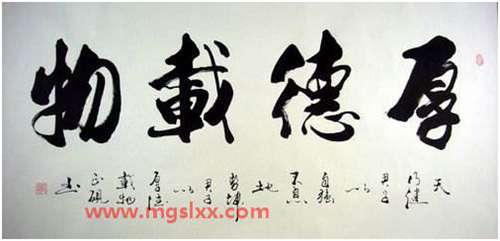 厚德載物
天行健君子以自強不息地勢坤君子以厚德載物
www.mgslxx.com